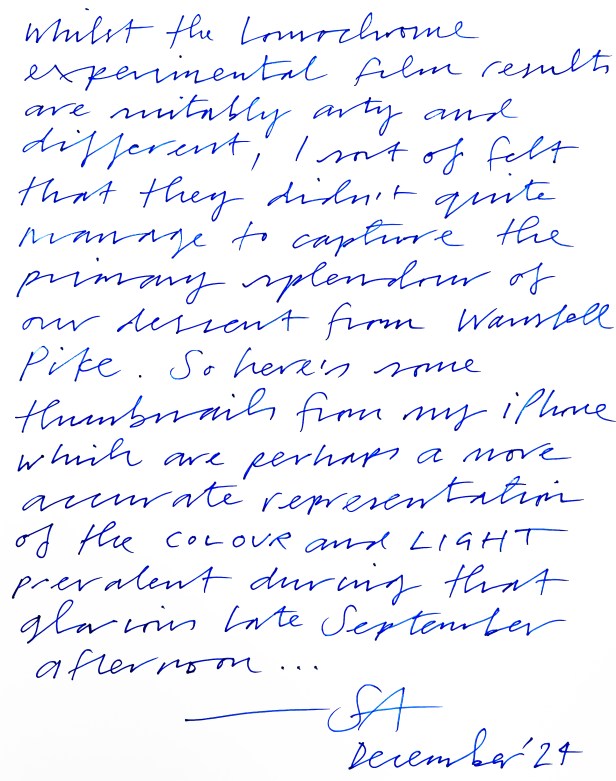 Whilst the Lomochrome
experimental film results
are suitably arty and
different, I sort of felt
that they didn't quite
manage to capture the
primary splendour of
our descent from Wansfell
Pike. So here's some
thumbnails from my iPhone
which are perhaps a more
accurate representation
of the COLOUR and LIGHT
prevalent during that
glorious late September
afternoon...
SA
December '24